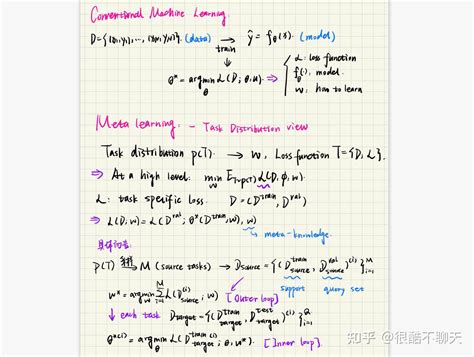 Conventional Machine Learning.
D={(x₁,y₁), ..., (xN,yN)}. (data) → train ŷ = fθ(x). (model)
⇒ θ* = argmin θ L(D; θ, w) → L: loss function
fθ(): model.
w: how to learn
Meta learning. - Task Distribution view
Task distribution p(T). → w, Loss function T={D, L}.
⇒ At a high level. min w E T~p(T) L(D, w)
L: task specific loss. D=(D^train, D^val)
⇒ L(D, w) = L(D^val; θ*(D^train, w), w)
↳ meta-knowledge.
p(T) → M (source tasks) → Dsource={(D^train source, D^val source)^(i)} M i=1
support query set
w* = argmin w Σ M i=1 L(D^(i) source; w) [Outer loop]
↓ each task Dtarget={(D^train target, D^test target)^(i)} Q i=1
θ*^(i) = argmin θ L(D^train (i) target; θ, w*). [Inner loop]
知乎 @很酷不聊天